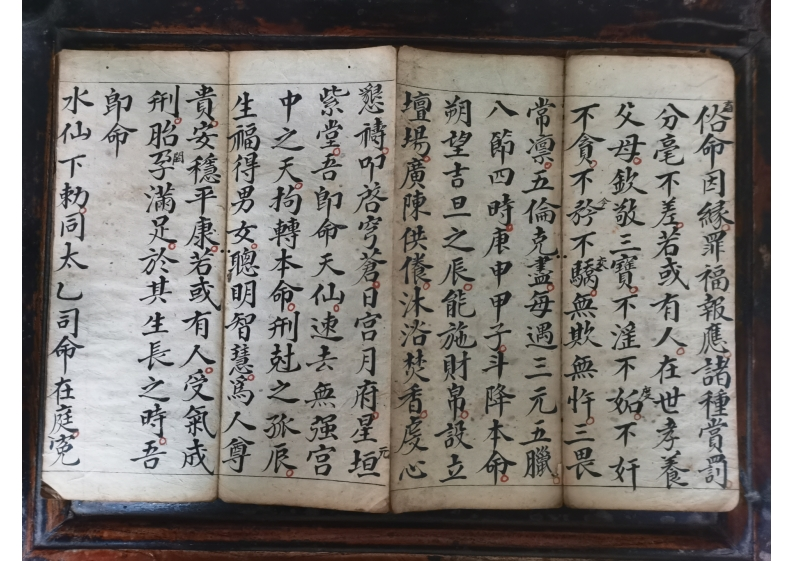 俗命因緣罪福報應諸種賞罰
分毫不差若或有人在世孝養
父母欽敬三寶不滛不妬不奸
不貪不矜不驕無欺無忤三畏
常凛五倫克盡每遇三元五臘
八節四時庚申甲子斗降本命
朔望吉旦之辰能施財帛設立
壇場廣陳供儀沐浴焚香虔心
懇禱叩啓穹蒼日宮月府星垣
紫堂吾即命天仙速去無强宮
中之天拘轉本命刑尅之孤辰
生福得男女聰明智慧爲人尊
貴安穩平康若或有人受氣成
刑胎孕滿足於其生長之時吾
即命
水仙下勅同太乙司命在庭寃